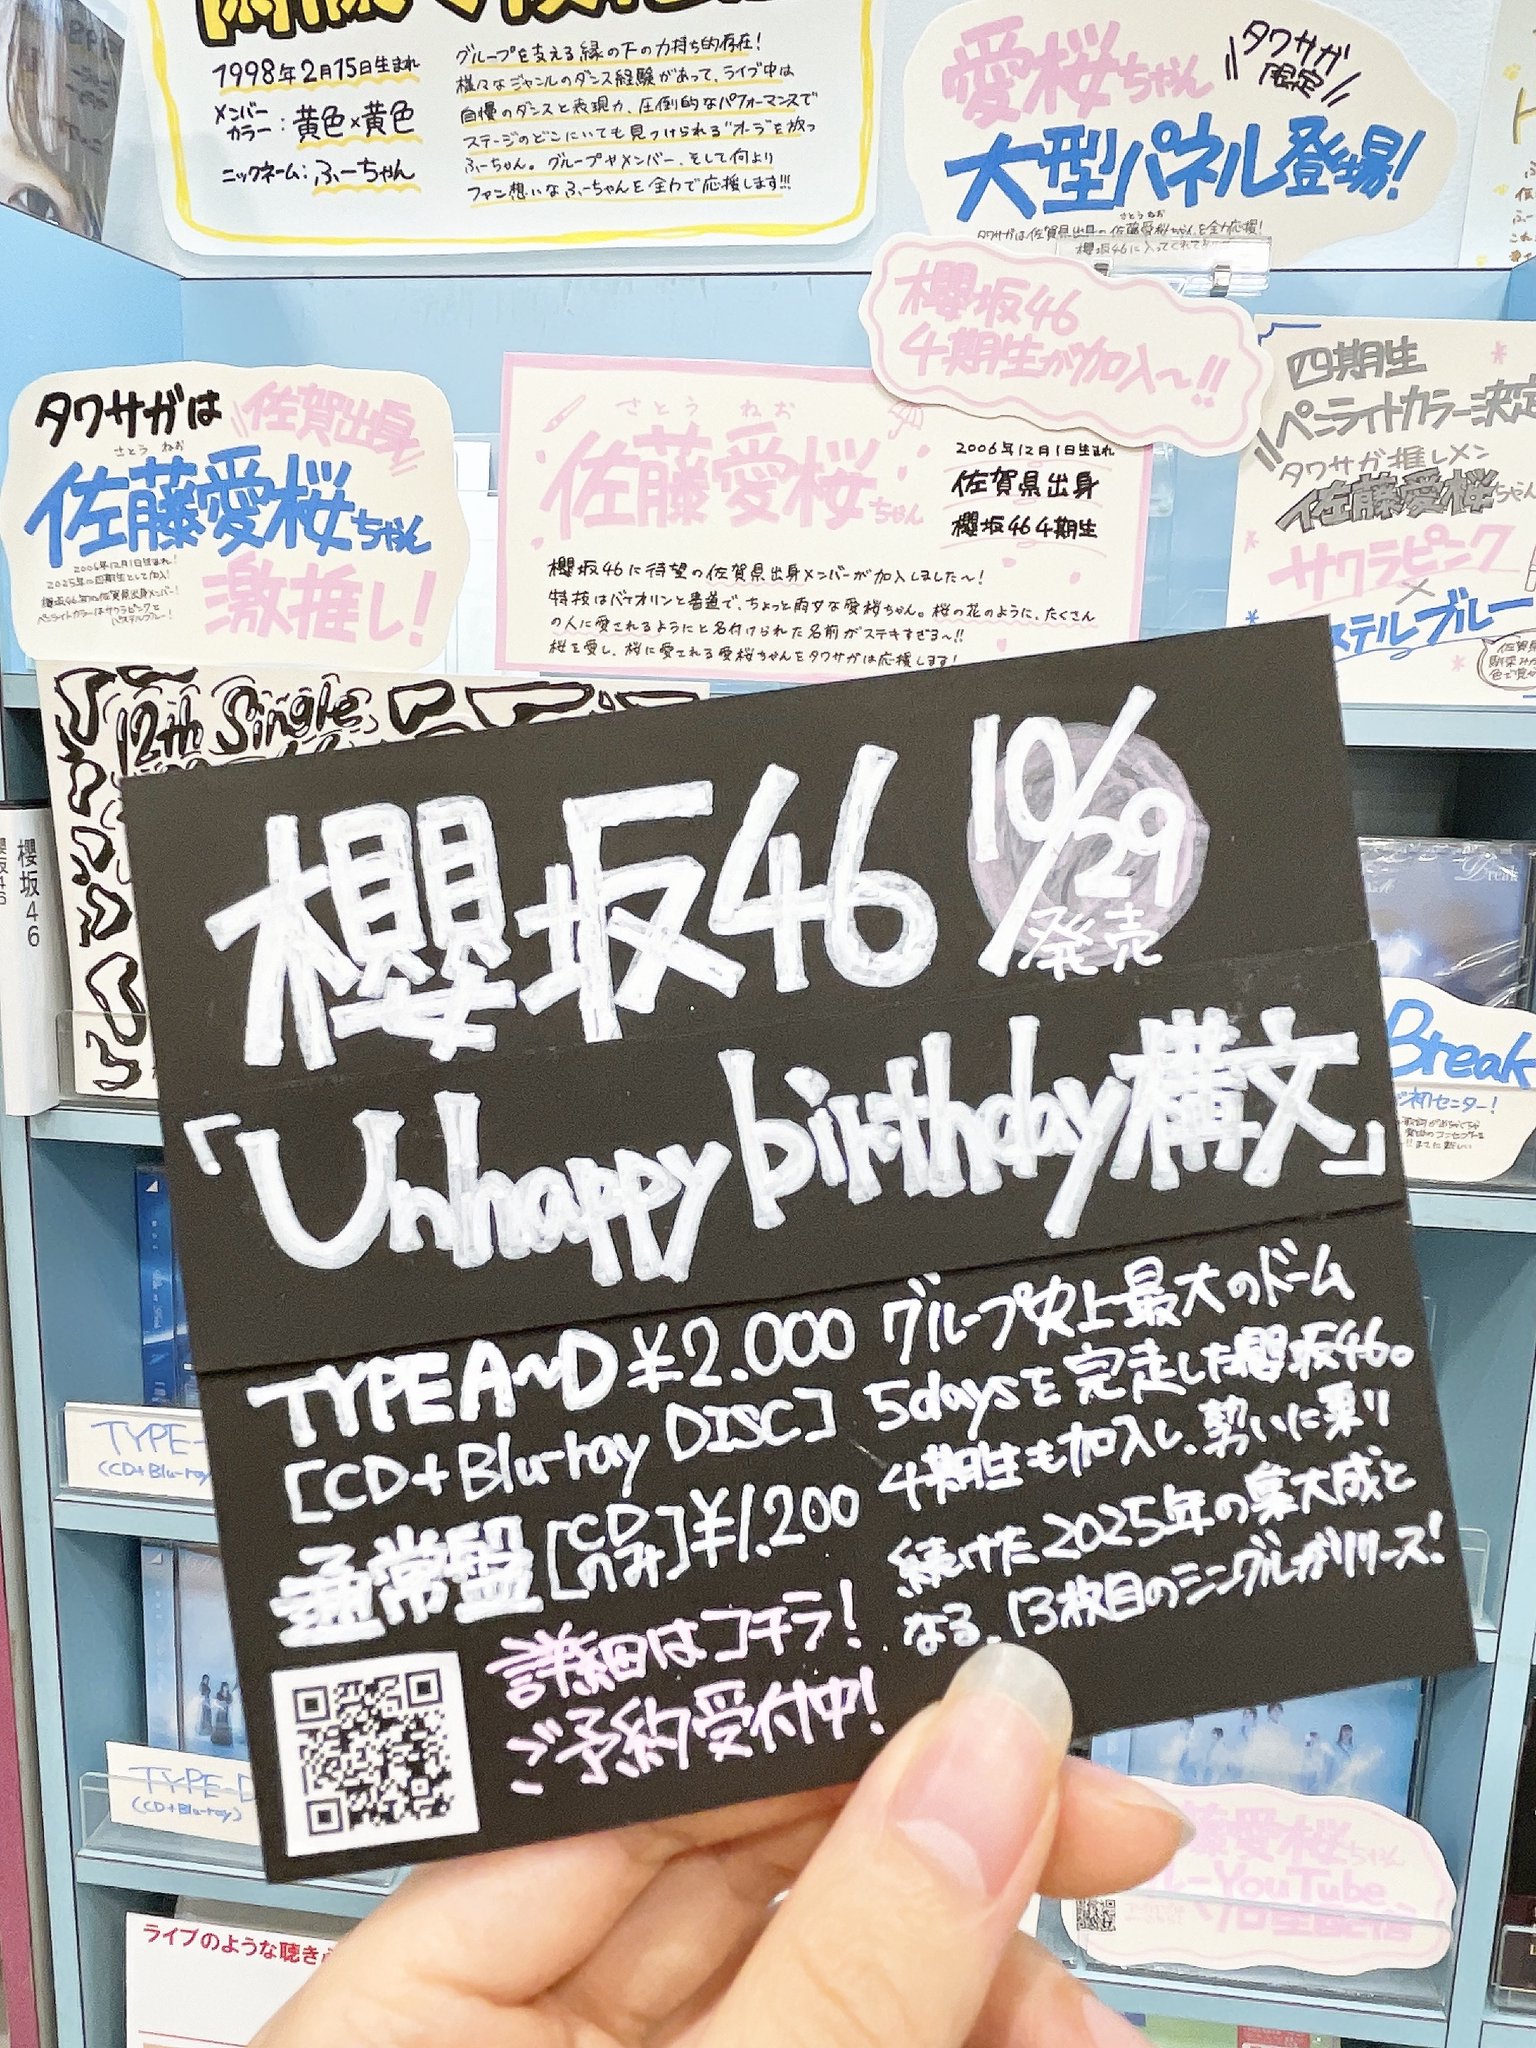 1998年2月15日生まれ
メンバーカラー：黄色×黄色
ニックネーム：ふーちゃん
グループを支える縁の下の力持ち的存在！
様々なジャンルのダンス経験があって、ライブ中は
自慢のダンスと表現力、圧倒的なパフォーマンスで
ステージのどこにいても見つけられる"オーラ"を放つ
ふーちゃん。グループやメンバー、そして何より
ファン想いなふーちゃんを全力で応援します!!!
愛桜ちゃん
タワサガ限定
大型パネル登場！
さとうねお
タワサガは佐賀県出身の佐藤愛桜ちゃんを全力応援！
櫻坂46に入ってくれて
櫻坂46
4期生が加入〜!!
タワサガは
佐賀出身
さとう ねお
佐藤愛桜ちゃん
2006年12月1日生まれ！
2025年に四期生として加入！
櫻坂46初の佐賀県出身メンバー！
ペンライトカラーはサクラピンクと
パステルブルー！
激推し！
さとう ねお
佐藤愛桜ちゃん
2006年12月1日生まれ
佐賀県出身
櫻坂46 4期生
櫻坂46に待望の佐賀県出身メンバーが加入しました〜！
特技はバイオリンと書道で、ちょっと雨女な愛桜ちゃん。桜の花のように、たくさん
の人に愛されるようにと名付けられた名前がステキすぎる〜!!
桜を愛し、桜に愛される愛桜ちゃんをタワサガは応援します！
四期生
ペンライトカラー決定
タワサガ推しメン
佐藤愛桜ちゃん
サクラピンク
×
ステルブルー
12th Single
櫻坂46
櫻坂46
櫻坂46
10/29
発売
「Unhappy birthday構文」
TYPE A〜D ¥2.000
[CD+Blu-ray DISC]
通常盤[CDのみ]¥1.200
グループ史上最大のドーム
5daysを完走した櫻坂46。
4期生も加入し、勢いに乗り
続けた2025年の集大成と
なる、13枚目のシングルがリリース！
詳細はコチラ！
ご予約受付中！
Break
初センター！
TYPE-
(CD+Blu-ray
TYPE-D
(CD+Blu-ray)
藤愛桜ちゃん
YouTube
ライブのような聴き